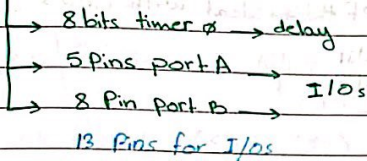 → 8 bits timer φ → delay
→ 5 Pins port A →
I/Os
→ 8 Pin Port B →
13 Pins for I/Os